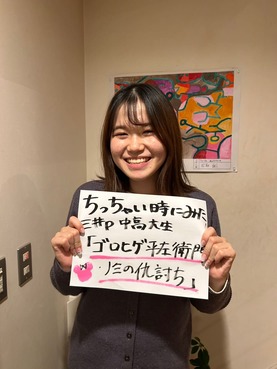 ちっちゃい時にみた
三井P 中高大生
「ゴロヒゲ平左衛門
ノミの仇討ち」